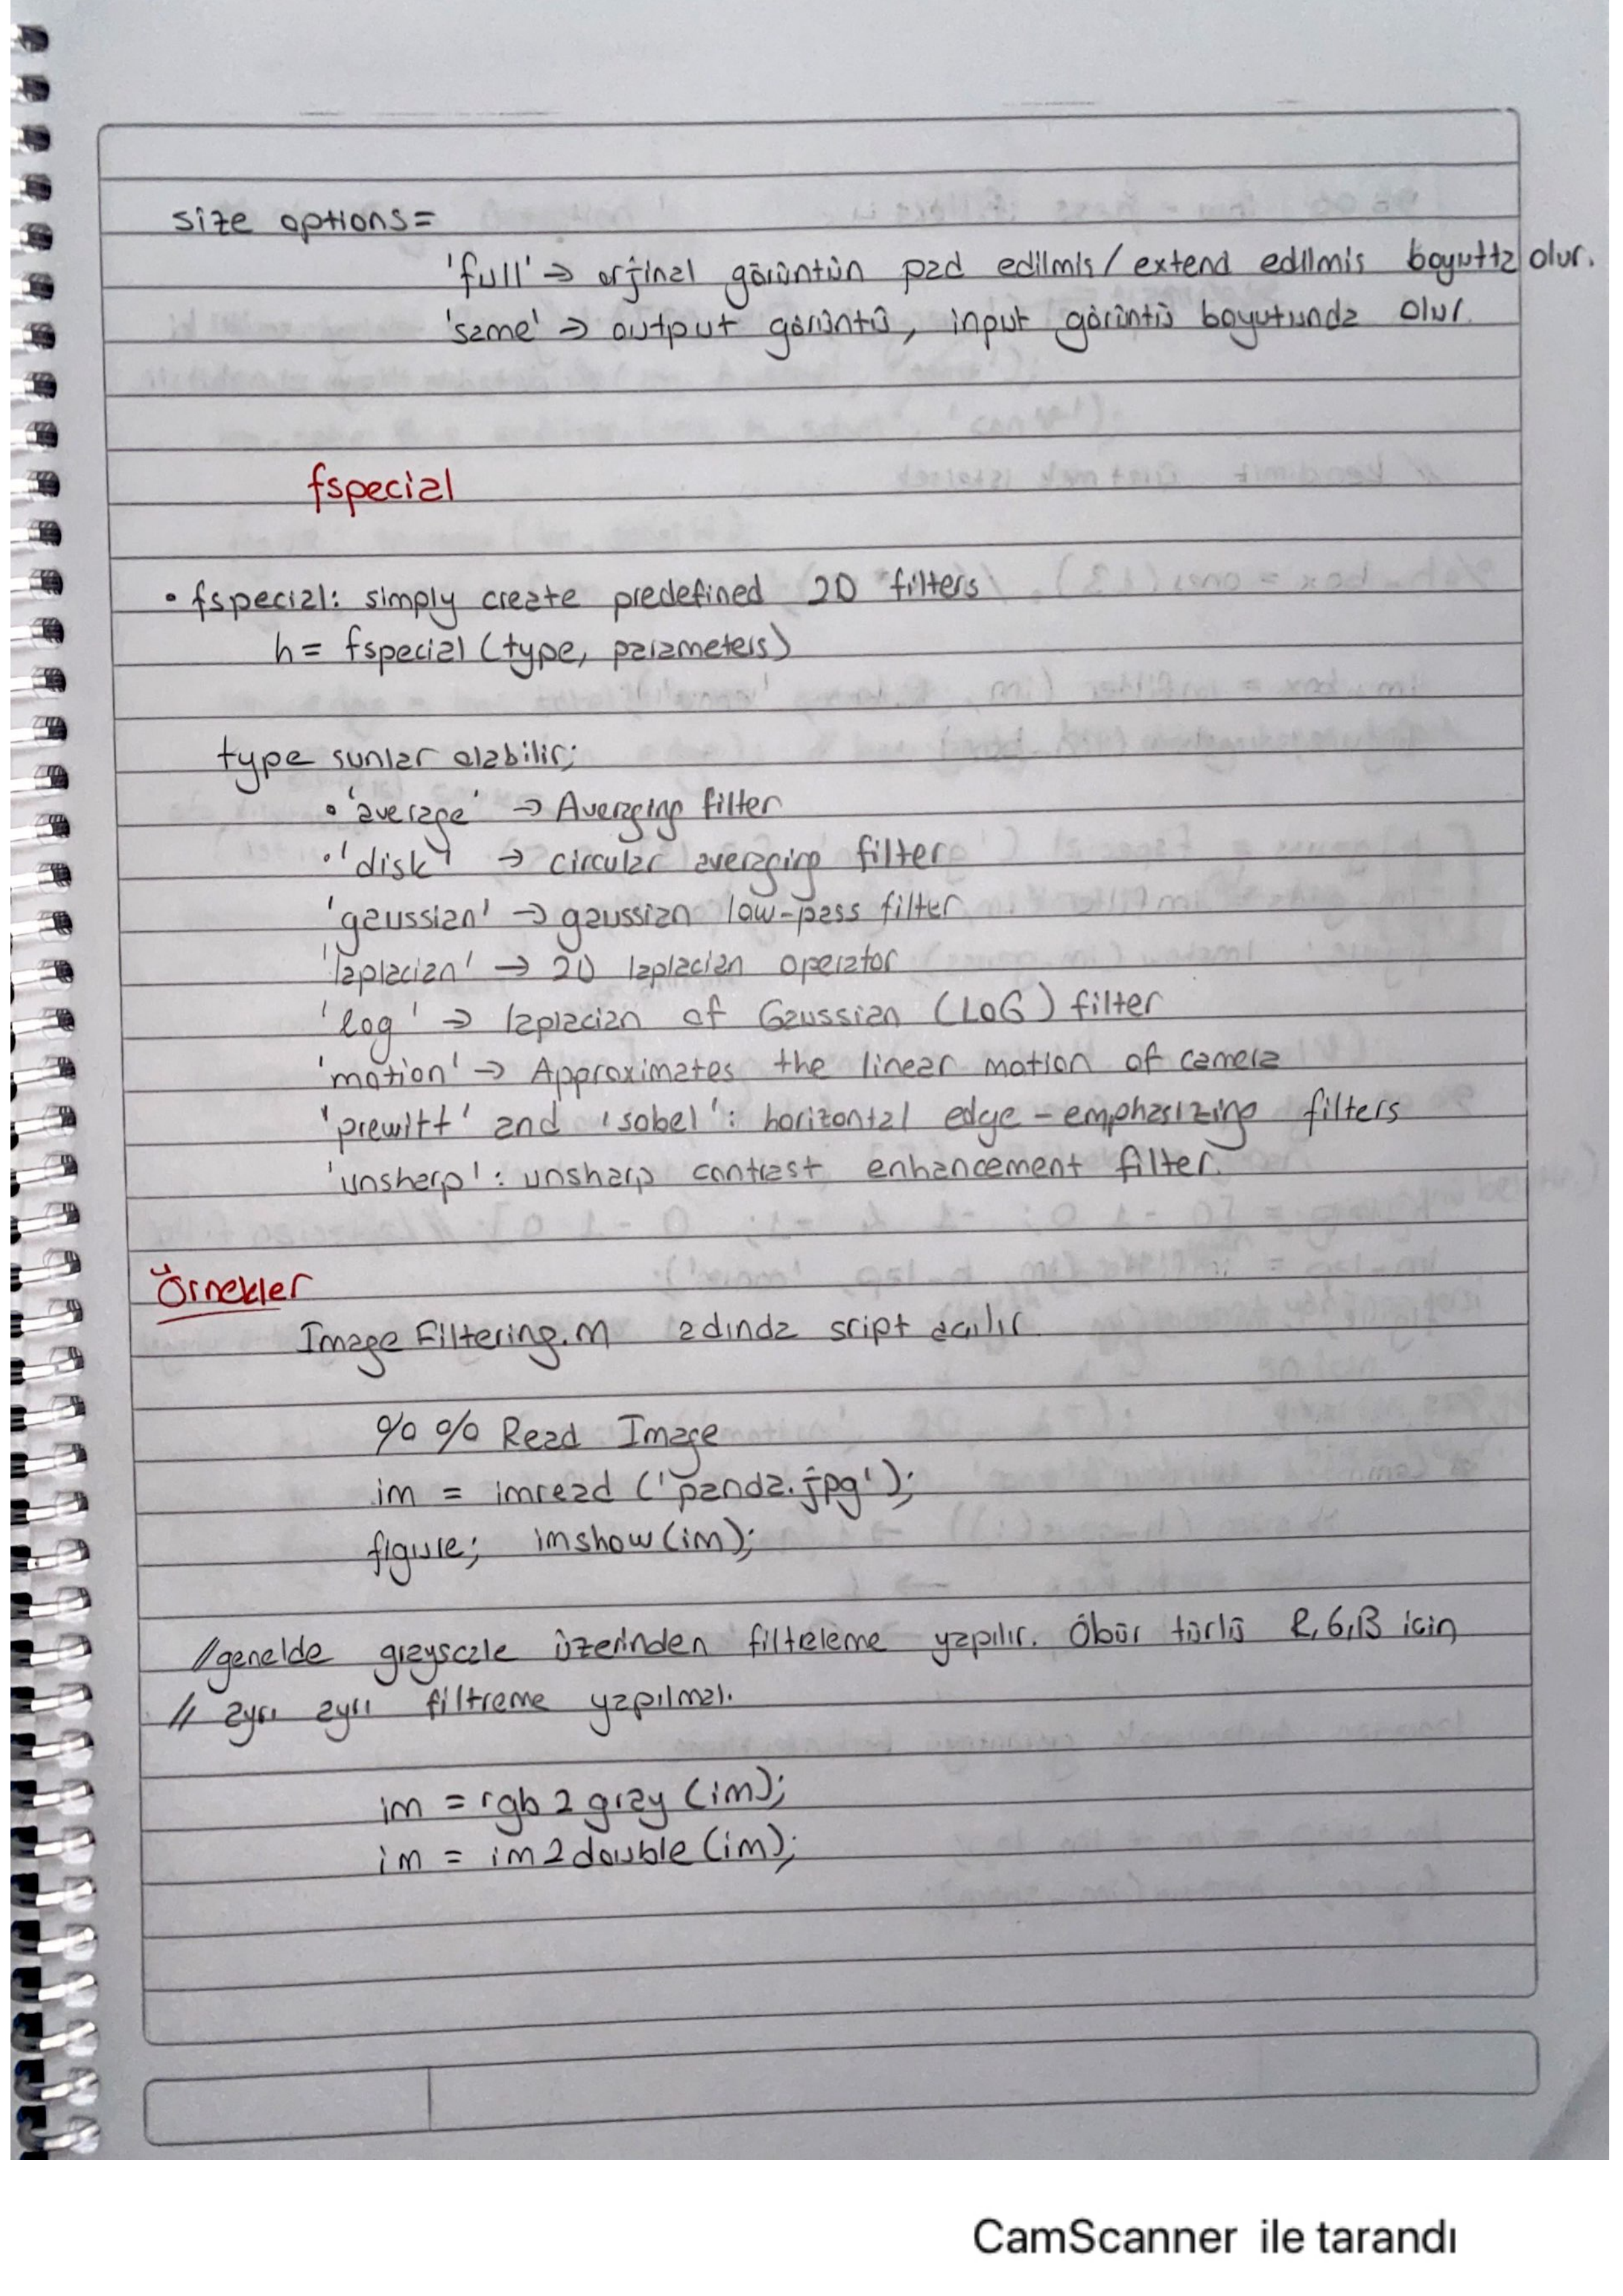 size options=
'full' → orjinal görüntün pad edilmis/extend edilmis boyutta olur.
'same' → output görüntü, input görüntü boyutunda olur.
fspecial
• fspecial: simply create predefined 2D filters
h= fspecial (type, parameters)
type sunlar olabilir;
• 'average' → Averaging filter
• 'disk' → circular averaging filter
'gaussian' → gaussian low-pass filter
'laplacian' → 2D laplacian operator
'log' → laplacian of Gaussian (LoG) filter
'motion' → Approximates the linear motion of camera
'prewitt' and 'sobel': horizontal edge-emphasizing filters
'unsharp': unsharp contrast enhancement filter.
Örnekler
Image Filtering.m adında sript acılır.
%% Read Image
im = imread ('panda.jpg');
figure; imshow(im);
//genelde grayscale üzerinden filtreleme yapılır. Öbür türlü R,G,B icin
// ayrı ayrı filtreme yapılmalı.
im = rgb2gray (im);
im = im2double (im);
CamScanner ile tarandı